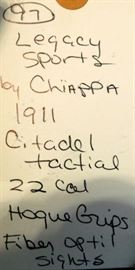 97
Legacy
Sports
by Chiappa
1911
Citadel
tactial
22 Cal
Hogue Grips
Fiber opti
sights